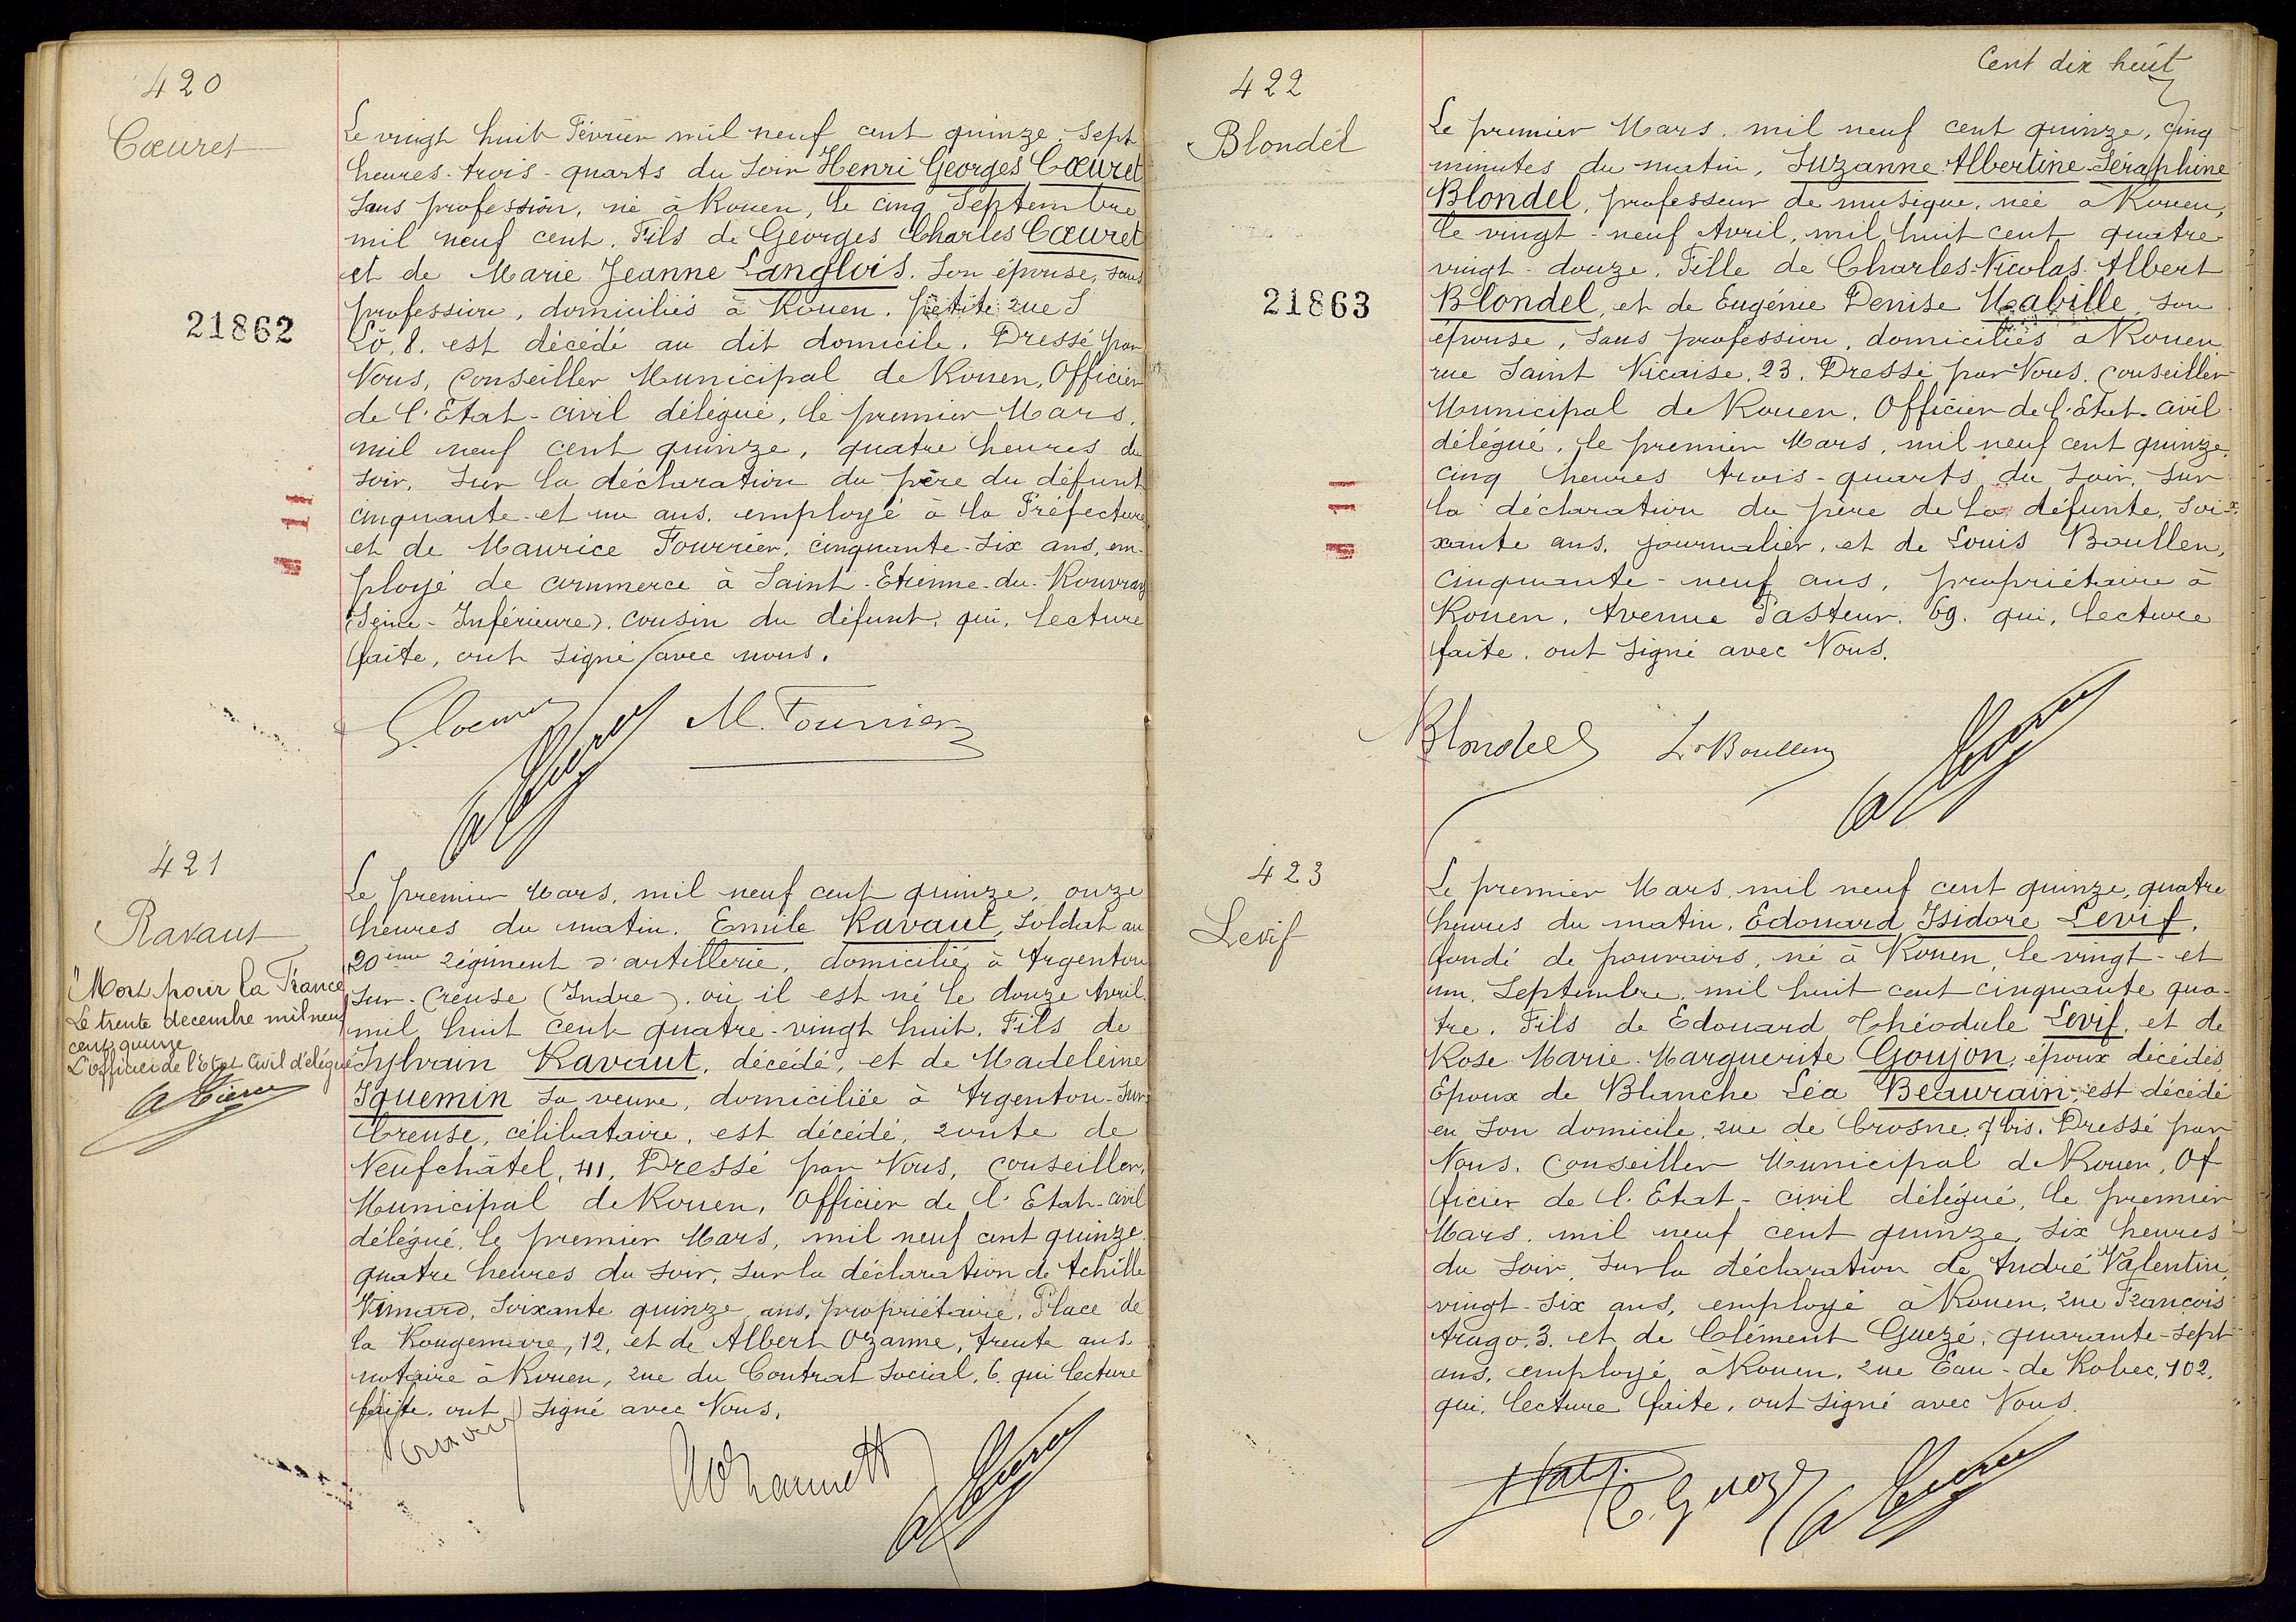 420
Cœuret
21862
Le vingt huit Février mil neuf cent quinze, sept
heures trois-quarts du soir Henri Georges Cœuret
sans profession, né à Rouen, le cinq Septembre
mil neuf cent. Fils de Georges Charles Cœuret
et de Marie Jeanne Langlois. son épouse, sans
profession, domiciliés à Rouen. petite rue S
Lô, 8. est décédé au dit domicile. Dressé par
Nous, Conseiller Municipal de Rouen, Officier
de l'Etat-civil délégué, le premier Mars,
mil neuf cent quinze, quatre heures du
soir. Sur la déclaration du père du défunt
cinquante-et un ans. employé à la Préfecture
et de Maurice Fourrier, cinquante-six ans, em-
ployé de commerce à Saint-Etienne-du-Rouvray
(Seine-Inférieure). cousin du défunt, qui, lecture
faite, ont signé avec nous.
M. Fourrier
421
Ravaut
"Mort pour la France
Le trente decembre mil neuf
cent quinze
L'officier de l'Etat Civil délégué
Le premier Mars, mil neuf cent quinze, onze
heures du matin. Emile Ravaut, soldat au
20ème régiment d'artillerie, domicilié à Argenton
sur-Creuse (Indre). où il est né le douze Avril
mil huit cent quatre-vingt huit. Fils de
Sylvain Ravaut, décédé, et de Madeleine
Iquemin sa veuve, domiciliée à Argenton-sur
Creuse, célibataire, est décédé, route de
Neufchâtel, 41, Dressé par Nous, Conseiller,
Municipal de Rouen, Officier de l'Etat-civil
délégué, le premier Mars, mil neuf cent quinze
quatre heures du soir, sur la déclaration de Achille
Vimard, soixante quinze ans, propriétaire, Place de
la Rougemare, 12, et de Albert Ozanne, trente ans.
notaire à Rouen, rue du Contrat Social, 6. qui lecture
faite, ont signé avec Nous.
Cent dix huit
422
Blondel
21863
Le premier Mars, mil neuf cent quinze, cinq
minutes du matin, Suzanne Albertine Séraphine
Blondel, professeur de musique, née à Rouen,
le vingt-neuf Avril, mil huit cent quatre
vingt-douze. Fille de Charles-Nicolas Albert
Blondel, et de Eugénie Denise Mabille, son
épouse, sans profession, domiciliés à Rouen
rue Saint Nicaise, 23. Dressé par Nous. conseiller
Municipal de Rouen. Officier de l'état-civil
délégué, le premier Mars, mil neuf cent quinze,
cinq heures trois-quarts du soir, sur
la déclaration du père de la défunte, soi-
xante ans, journalier, et de Louis Boullen,
cinquante-neuf ans, propriétaire à
Rouen, Avenue Pasteur, 69. qui, lecture
faite, ont signé avec Nous.
Blondel Ls Boullen
423
Levif
Le premier Mars, mil neuf cent quinze, quatre
heures du matin, Edouard Isidore Levif,
fondé de pouvoirs, né à Rouen, le vingt-et
un, Septembre, mil huit cent cinquante qua-
tre. Fils de Edouard Théodule Levif, et de
Rose Marie Marguerite Goujon, époux décédés,
Epoux de Blanche Léa Beaurain, est décédé
en son domicile, rue de Crosne, 7 bis. Dressé par
Nous. Conseiller Municipal de Rouen, Of
ficier de l'Etat-civil délégué, le premier
Mars, mil neuf cent quinze, six heures
du soir, sur la déclaration de André Valentin,
vingt-six ans, employé à Rouen, rue François
Arago, 3. et de Clément Guezé, quarante-sept
ans, employé, à Rouen, rue Eau-de Robec, 102,
qui, lecture faite, ont signé avec Nous.